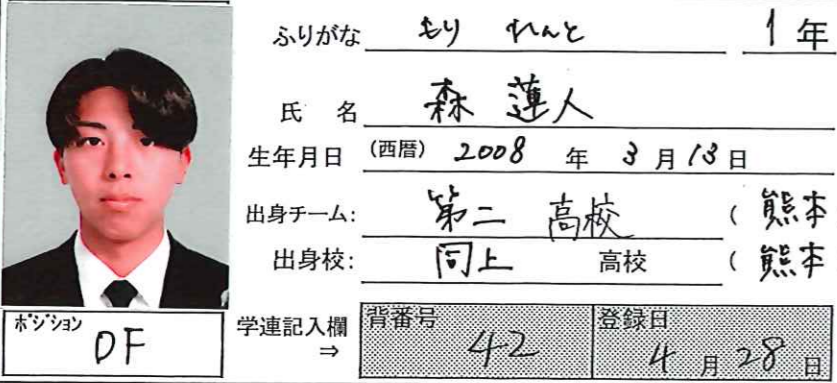 ふりがな もり れんと 1年
氏 名 森 蓮人
生年月日 (西暦) 2008 年 3 月 13 日
出身チーム: 第二 高校 ( 熊本
出身校: 同上 高校 ( 熊本
ポジション DF
学連記入欄 ⇒ 背番号 42 登録日 4 月 28 日